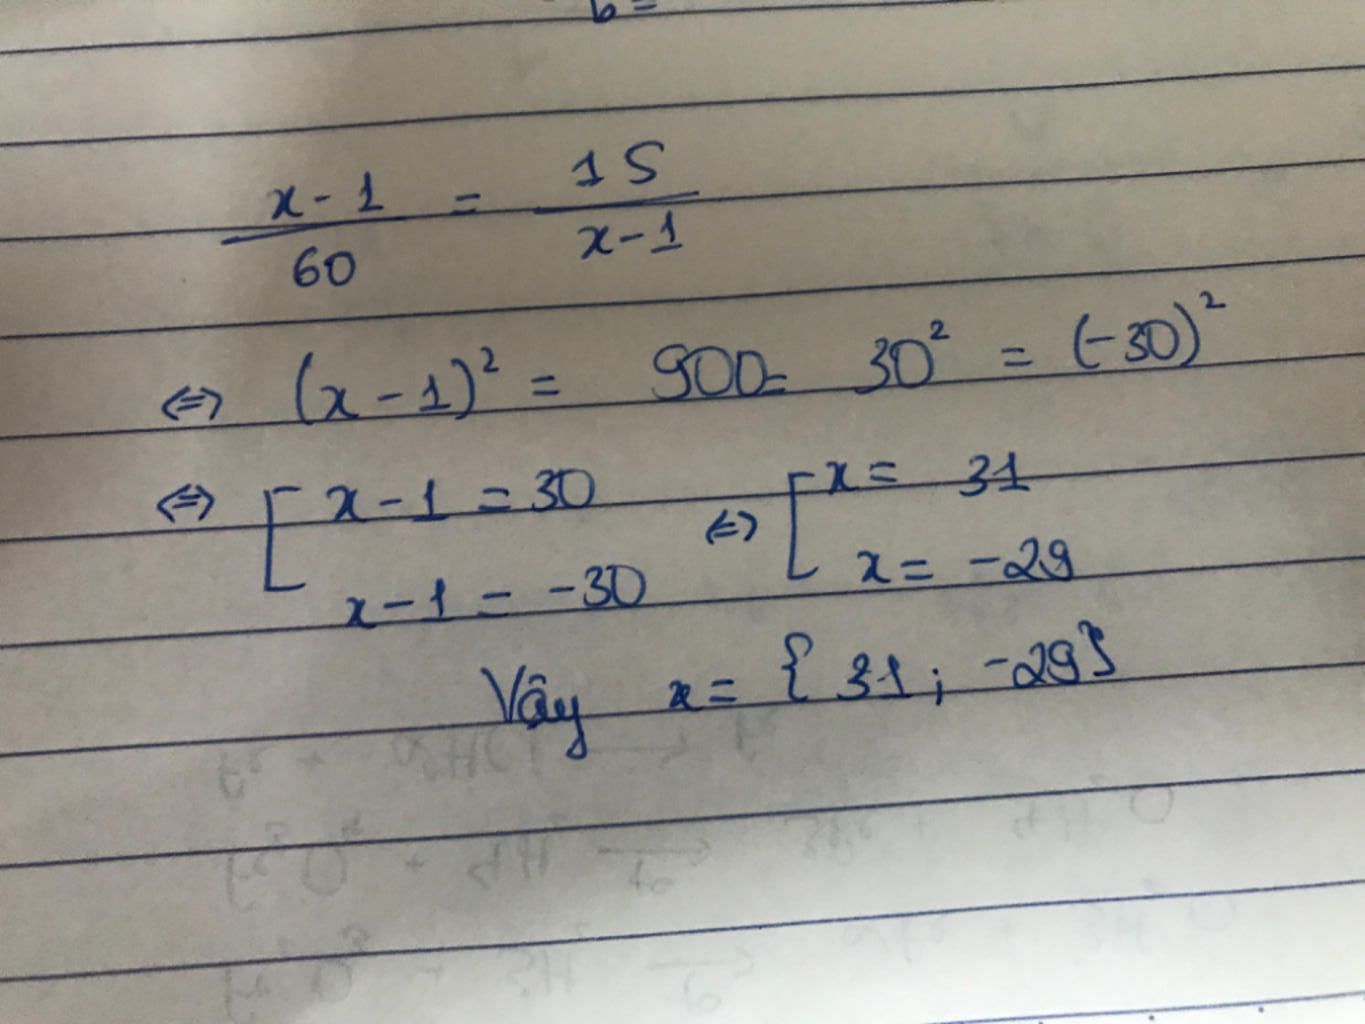 b =
x - 1 / 60 = 15 / x - 1
⇔ (x - 1)² = 900 = 30² = (-30)²
⇔ [ x - 1 = 30 ⇔ [ x = 31
x - 1 = -30 x = -29
Vậy x = { 31 ; -29 }